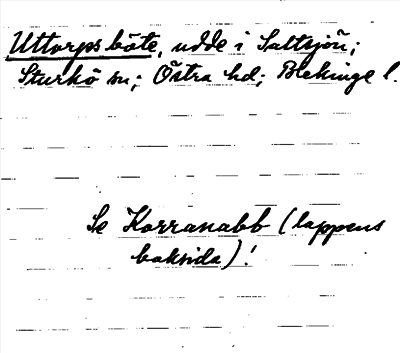 Uttorps böte, udde i Saltsjön;
Sturkö sn; Östra hd; Blekinge l.
Se Korranabb (lappens
baksida)!